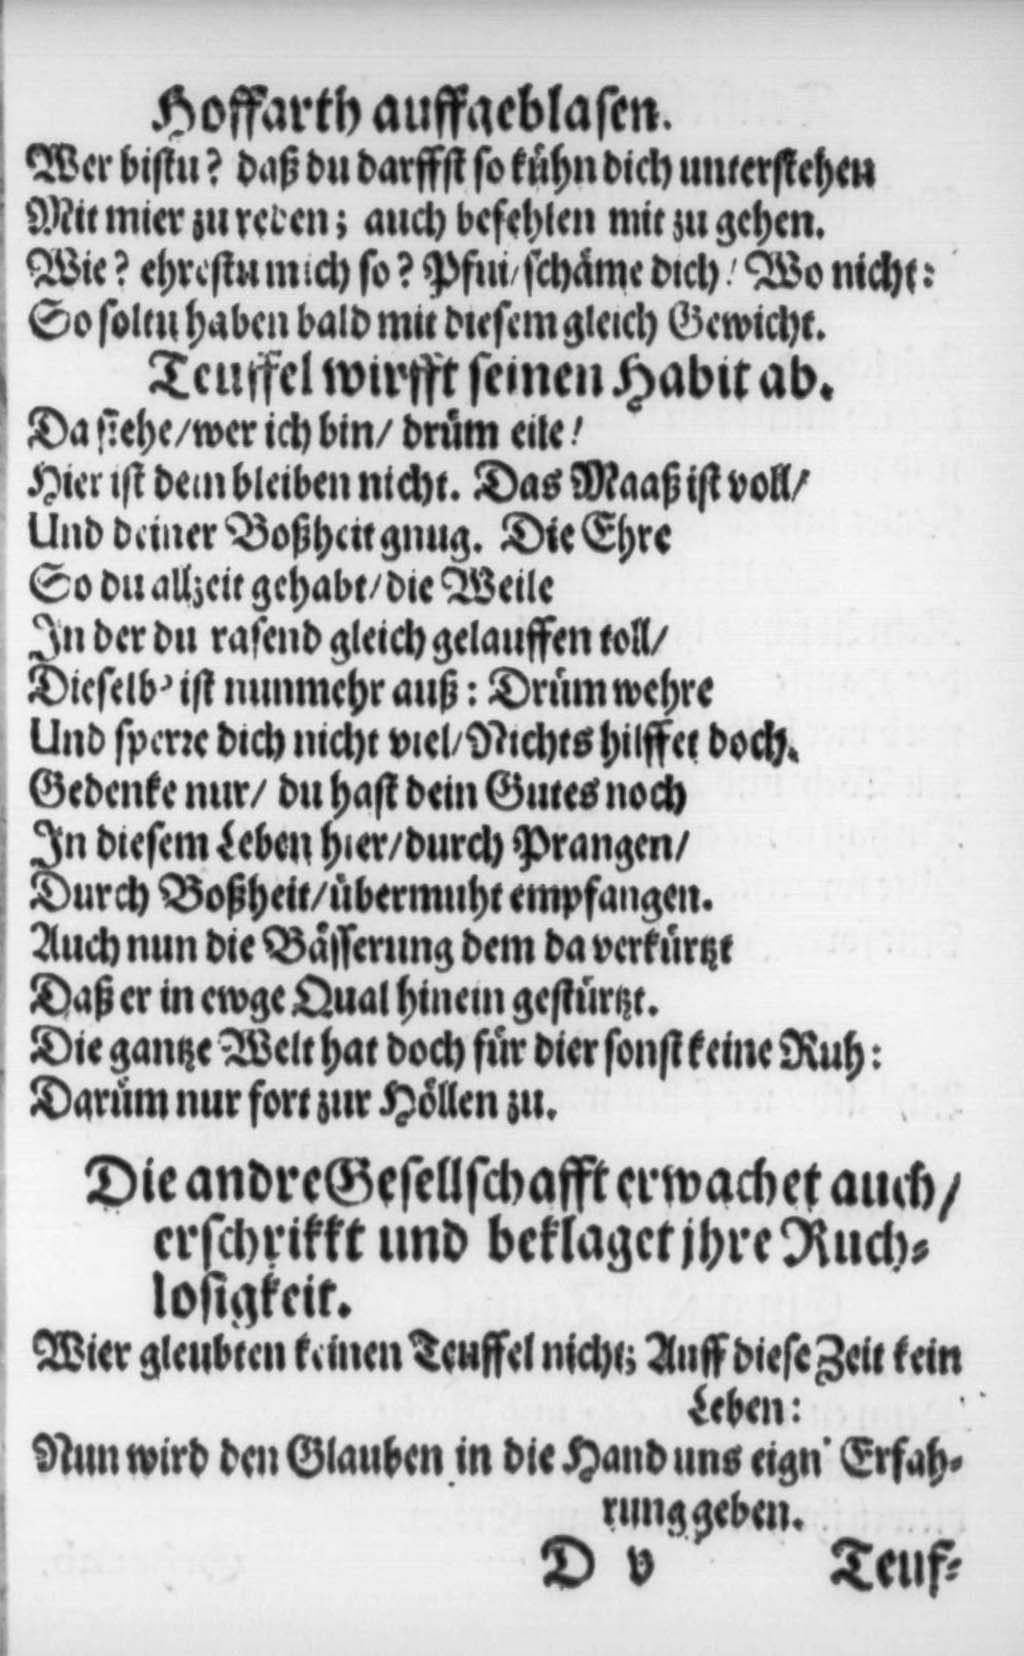 Hoffarth auffgeblasen.
Wer bistu? daß du darffst so kühn dich unterstehen
Mit mier zu reden; auch befehlen mit zu gehen.
Wie? ehrestu mich so? Pfui/schäme dich! Wo nicht:
So soltu haben bald mit diesem gleich Gewicht.
Teuffel wirfft seinen Habit ab.
Da siehe/wer ich bin/ drüm eile!
Hier ist dein bleiben nicht. Das Maaß ist voll/
Und deiner Boßheit gnug. Die Ehre
So du allzeit gehabt/die Weile
In der du rasend gleich gelauffen toll/
Dieselb' ist nunmehr auß: Drüm wehre
Und sperre dich nicht viel/Nichts hilffet doch.
Gedenke nur/ du hast dein Gutes noch
In diesem Leben hier/durch Prangen/
Durch Boßheit/übermuht empfangen.
Auch nun die Bässerung dem da verkürtzt
Daß er in ewge Qual hinein gestürtzt.
Die gantze Welt hat doch für dier sonst keine Ruh:
Darüm nur fort zur Höllen zu.
Die andre Gesellschafft erwachet auch/
erschrikkt und beklaget jhre Ruch-
losigkeit.
Wier gleubten keinen Teuffel nicht; Auff diese Zeit kein
Leben:
Nun wird den Glauben in die Hand uns eign' Erfah-
rung geben.
D v Teuf-